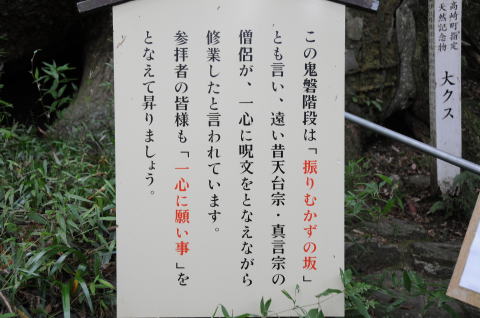 この鬼磐階段は「振りむかずの坂」
とも言い、遠い昔天台宗・真言宗の
僧侶が、一心に呪文をとなえながら
修業したと言われています。
参拝者の皆様も「一心に願い事」を
となえて昇りましょう。
高崎町指定
天然記念物
大クス